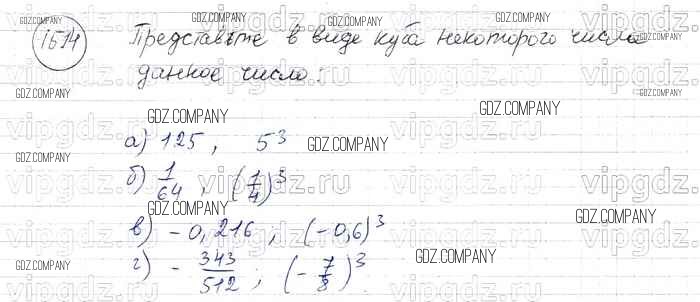 1514
Представьте в виде куба некоторого числа
данное число:
а) 125, 5³
б) 1/64, (1/4)³
в) -0,216; (-0,6)³
г) -343/512; (-7/8)³
GDZ.COMPANY
vipgdz.ru